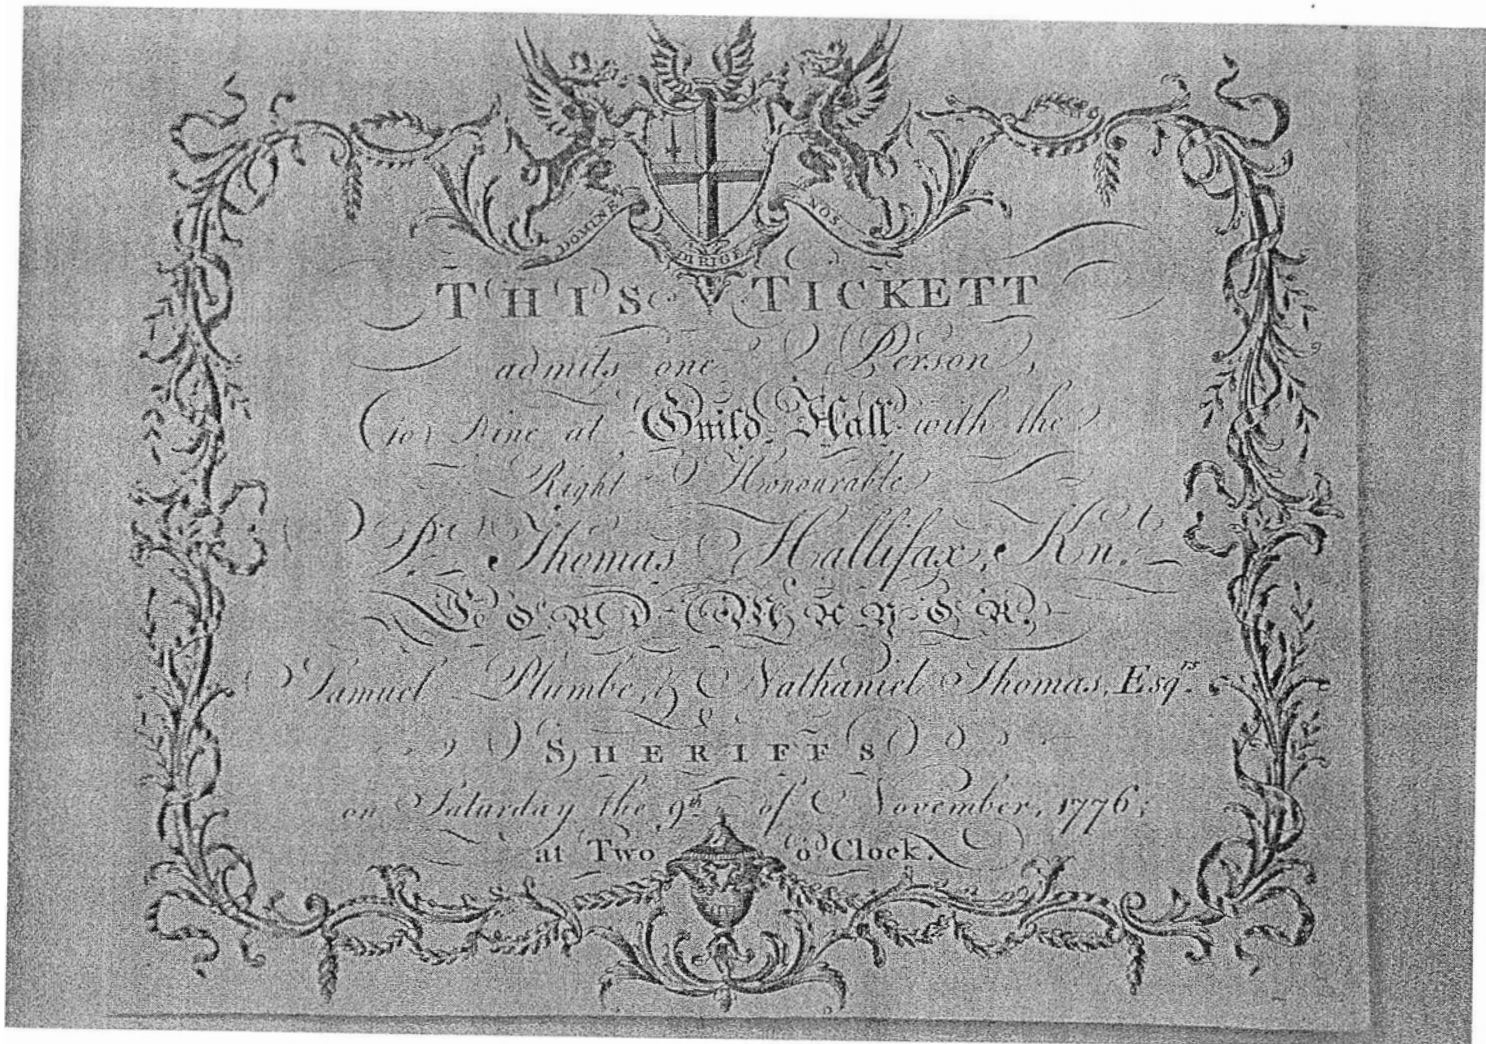 DOMINE DIRIGE NOS
THIS TICKETT
admits one Person,
to Dine at Guild Hall with the
Right Honourable
Sr. Thomas Hallifax, Knt.
LORD MAYOR.
Samuel Plumbe, & Nathaniel Thomas, Esqrs.
SHERIFFS
on Saturday the 9th of November, 1776;
at Two o'Clock.